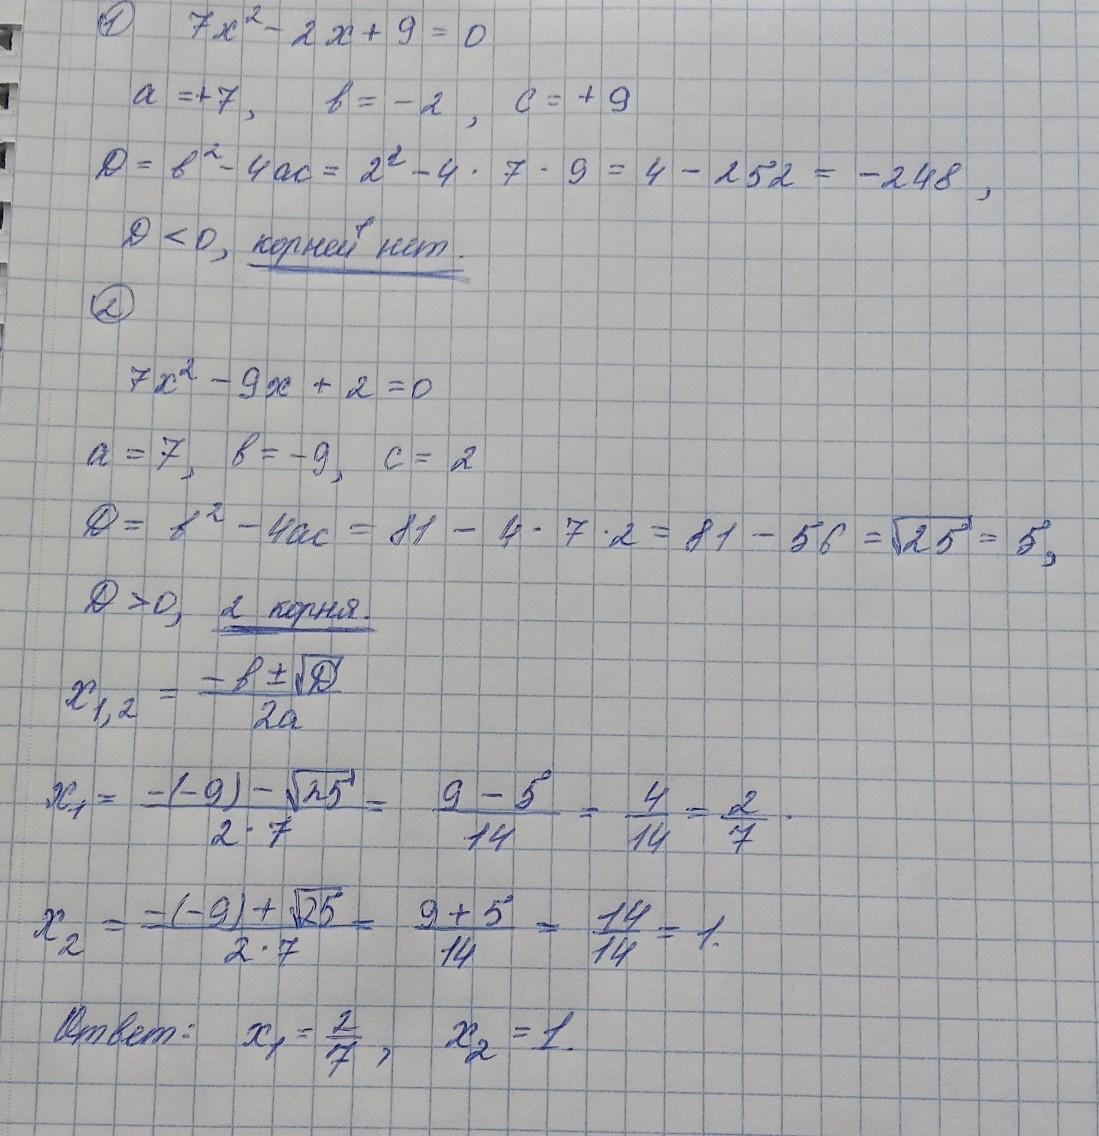 ① 7x² - 2x + 9 = 0
a = +7, в = -2, c = +9
D = в² - 4ac = 2² - 4 · 7 · 9 = 4 - 252 = -248,
D < 0, корней нет.
②
7x² - 9x + 2 = 0
a = 7, в = -9, c = 2
D = в² - 4ac = 81 - 4 · 7 · 2 = 81 - 56 = √25 = 5,
D > 0, 2 корня.
x₁,₂ = (-в ± √D)/2a
x₁ = (-(-9) - √25)/(2 · 7) = (9 - 5)/14 = 4/14 = 2/7.
x₂ = (-(-9) + √25)/(2 · 7) = (9 + 5)/14 = 14/14 = 1.
Ответ: x₁ = 2/7, x₂ = 1.